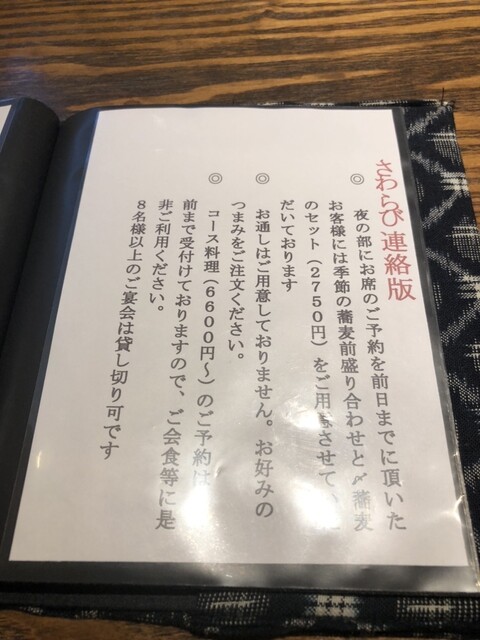 さわらび連絡版
◎ 夜の部にお席のご予約を前日までに頂いた
お客様には季節の蕎麦前盛り合わせと〆蕎麦
のセット（2750円）をご用意させてい
だいております
◎ お通しはご用意しておりません。お好みの
つまみをご注文ください。
◎ コース料理（6600円～）のご予約は
前まで受付けておりますので、ご会食等に是
非ご利用ください。
8名様以上のご宴会は貸し切り可です